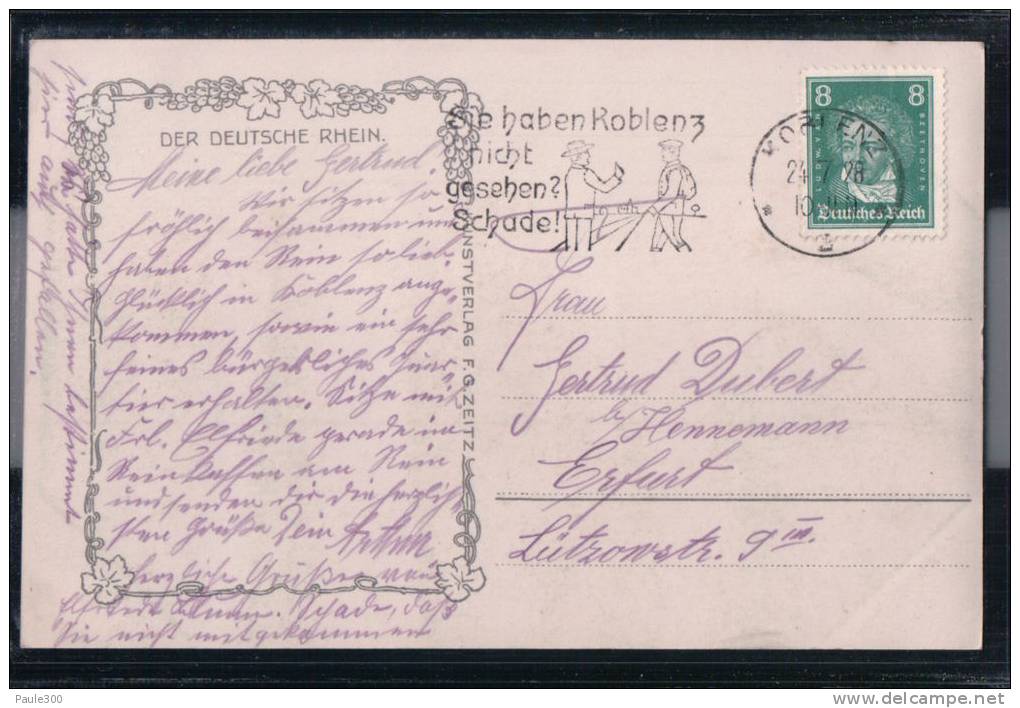 DER DEUTSCHE RHEIN.
Meine liebe Gertrud!
Wir sitzen so
fröhlich beisammen und
haben den Rein so lieb.
Glücklich in Koblenz ange-
kommen, sowie ein sehr
feines bürgerliches Quar-
tier erhalten. Sitze mit
Frl. Elfriede gerade im
am Rein
und senden dir die herzlich-
sten Grüße Dein Arthur
herzliche Grüße von
Schade, daß
Sie nicht mitgekommen
hätte Ihnen bestimmt
hier auch gefallen.
KUNSTVERLAG F.G. ZEITZ
Sie haben Koblenz
nicht
gesehen?
Schade!
KOBLENZ
24 28
10
* 1
8 8
LUDW. V. BEETHOVEN
Deutsches Reich
Frau
Gertrud Dubert
b/Hennemann
Erfurt
Lützowstr. 9 III.
Paule300
www.delcampe.net